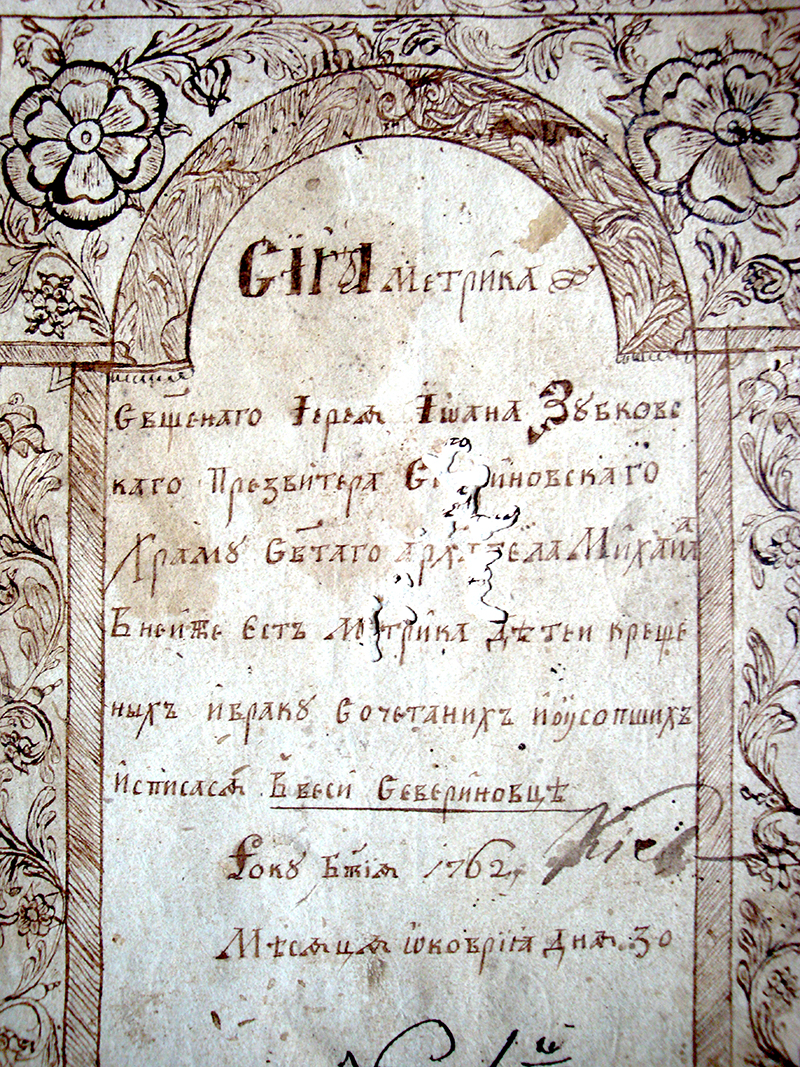 Сїѧ метрика
Свѣщенаго Іереѧ Іѡана Зубковс
каго Презвитера Северїновскаго
Храму Свѣтаго архаггела Михаила
В нейже Естъ Метрика дѣтей креще
ныхъ й браку Сочетанихъ й оусопшихъ
йсписасѧ В веси Северїновцѣ
Року Бжїѧ 1762
Мѣсѧцѧ ѡковрїа днѧ 30